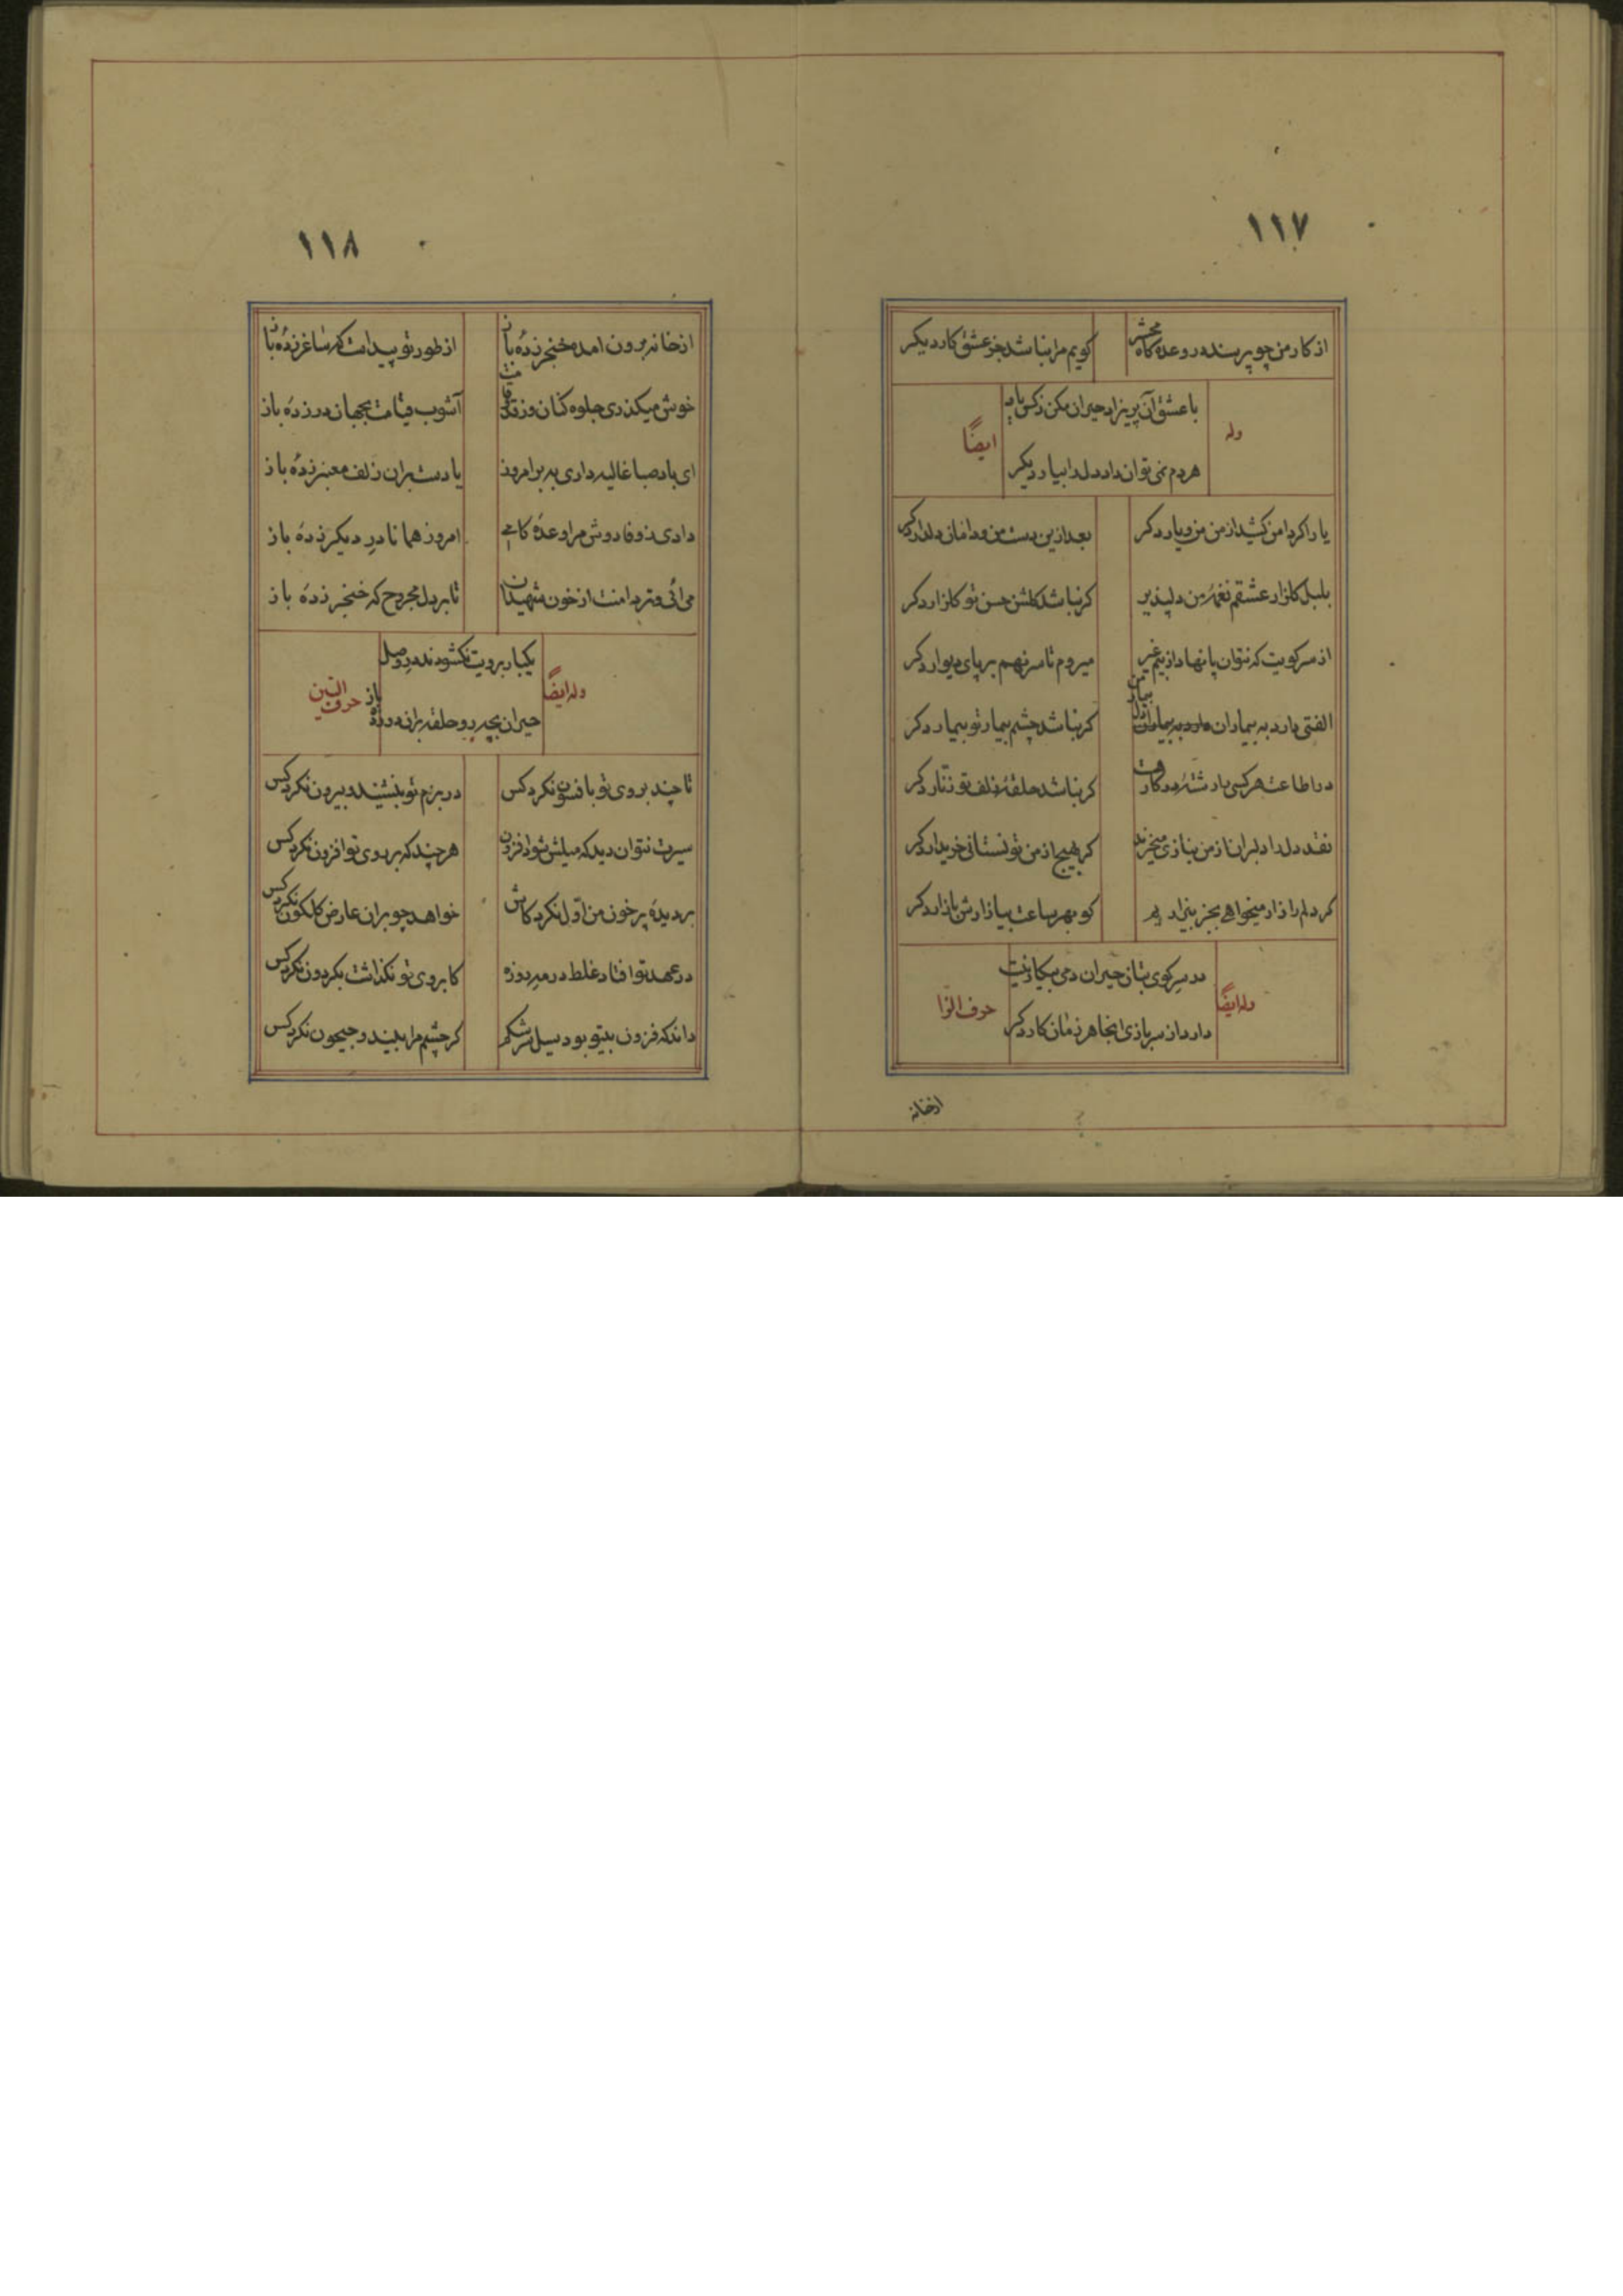 ۱۱۷
از کار من چو پرسند در وعده کاه محشر
کویم مرا نباشد جز عشق کار دیکر
وله
با عشق آن پریزاد حیران مکن زکس یاد
ایضاً
هر دم نمی توان داد دل را بیار دیکر
یار اکر دامن کشید از من من و یار دکر
بعد ازین دست من و دامان دلدار دکر
بلبل کلزار عشقم نغمهٔ من دلپذیر
کر نباشد کلشن حسن تو کلزار دکر
از سر کویت که نتوان پا نهاد از بیم غیر
میروم تا سر نهم بر پای دیوار دکر
الفتی دارد به بیماران
کر نباشد چشم بیمار تو بیمار دکر
در اطاعت هر کسی با رشتهٔ
کر نباشد حلقهٔ زلف تو زنّار دکر
نقد دل را دلبران از من ببازی میخرند
کر بهیچ از من تو نستانی خریدار دکر
کر دلم را زار میخواهی بجز
کو بهر ساعت بیازارش بازار دکر
وله ایضاً
در سر کوی بتان حیران دمی بیکار نیست
حرف الزا
دارد از سربازی انجا هر زمان کار دکر
ازخانه
۱۱۸
از خانه برون امده خنجر زدهٔ باز
از طور تو پیداست که ساغر زدهٔ باز
خوش میکذری جلوه کنان وز قد و قامت
آشوب قیامت بجهان در زدهٔ باز
ای باد صبا غالیه داری به بر امروز
یا دست بران زلف معنبر زدهٔ باز
دادی ز وفا دوش مرا وعدهٔ کامی
امروز همانا در دیکر زدهٔ باز
می ائی و تر دامنت از خون شهیدان
تا بر دل مجروح که خنجر زدهٔ باز
وله ایضاً
یکبار برویت نکشودند در وصل
حیران بچه رو حلقه بران در زدهٔ باز
حرف السین
تا چند بروی تو بافسون نکرد کس
در بزم تو بنشیند و بیرون نکرد کس
سیرت نتوان دید که میلش شود افزون
هر چند که بر روی تو افزون نکرد کس
بر دیدهٔ پر خون من اوّل نکرد کاش
خواهد چو بران عارض کلکون نکرد کس
در عهد تو افتاد غلط در مه روزه
کابروی تو نکذاشت بکردون نکرد کس
داند که فزون بیتو بود سیل سرشکم
کر چشم مرا بیند و جیحون نکرد کس